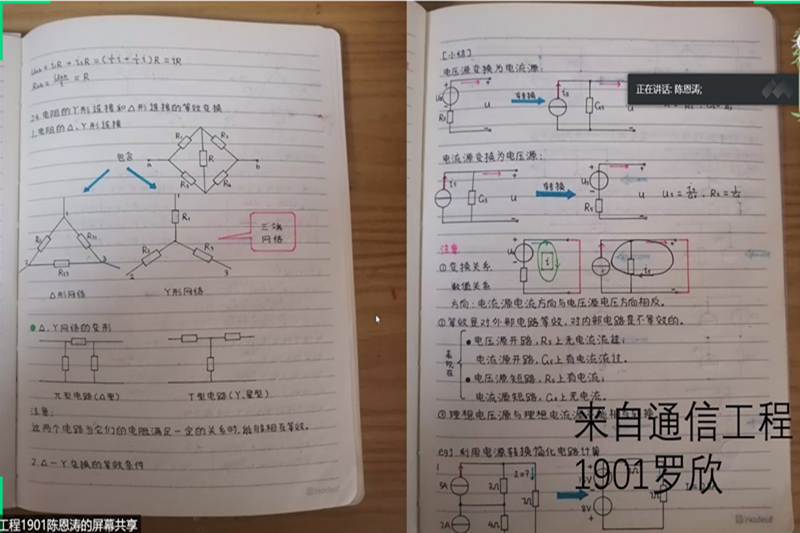 = R
2.4 电阻的Y形连接和△形连接的等效变换
1.电阻的△,Y形连接
包含
R1
R2
R
R3
R4
a
b
1
R2
R31
R23
2
3
△形网络
1
R1
R2
R3
2
3
Y形网络
三端
网络
△,Y网络的变形
π型电路(△型)
T型电路(Y,星型)
注意:
这两个电路当它们的电阻满足一定的关系时,能够相互等效。
2.△—Y变换的等效条件
工程1901陈恩涛的屏幕共享
[小结]
电压源变换为电流源:
Us
Rs
u
转换
is
Gs
u
正在讲话: 陈恩涛;
电流源变换为电压源:
is
Gs
u
转换
Us
Rs
u
注意
①变换关系
数值关系
i
is
方向:电流源电流方向与电压源电压方向相反。
②等效是对外部电路等效,对内部电路是不等效的。
表现在
●电压源开路,Rs上无电流流过;
电流源开路,Gs上有电流流过。
●电压源短路,Rs上有电流;
电流源短路,Gs上无电流。
③理想电压源与理想电流源
来自通信工程
1901罗欣
eg1.利用电源转换简化电路计算
5A
2Ω
I=?
2A
4Ω
8V